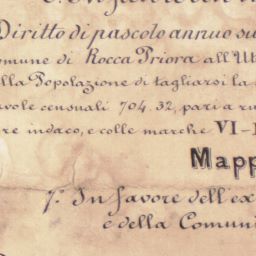 Diritto di pascolo annuo su
omune di Rocca Priora all'Ut
lla Popolazione di tagliarsi la
vole censuali 704.32, pari a ru
re indaco, e colle marche VI-I
Mapp
1º In favore dell'ex
e della Comuni